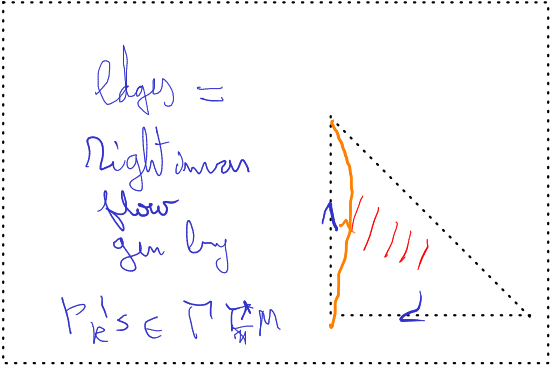 edges =
Right invar
flow
gen by
P_k's ∈ Γ T*M
1
2